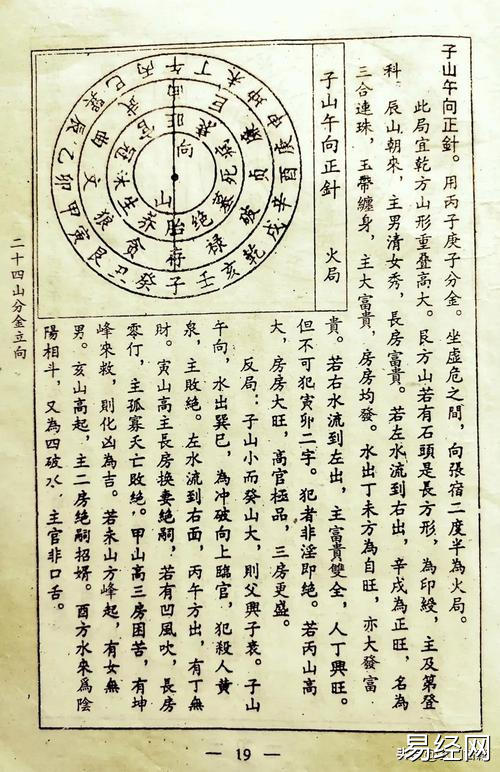 子山午向正針。用丙子庚子分金。坐虛危之間,向張宿二度半為火局。
此局宜乾方山形重叠高大。艮方山若有石頭是長方形,為印綬,主及第登
科。辰山朝來,主男清女秀,長房富貴。若左水流到右出,辛戌為正旺,名為
三合連珠,玉帶纏身,主大富貴,房房均發。水出丁未方為自旺,亦大發富
貴。若右水流到左出,主富貴雙全,人丁興旺。
但不可犯寅卯二字。犯者非淫即絕。若丙山高
大,房房大旺,高官極品,三房更盛。
反局:子山小而癸山大,則父興子衰。子山
午向,水出巽巳,為冲破向上臨官,犯殺人黄
泉,主敗絕。左水流到右面,丙午方出,有丁無
財。寅山高主長房換妻絕嗣,若有凹風吹,長房
零仃,主孤寡夭亡敗絕。甲山高三房困苦,有坤
峰來救,則化凶為吉。若未山方峰起,有女無
男。亥山高起,主二房絕嗣招婿。酉方水來為陰
陽相斗,又為四破水,主官非口舌。
子山午向正針 火局
午丁未坤申庚酉辛戌乾亥壬子癸丑艮寅甲卯乙辰巽巳丙
巨廉貞破祿存貪狼文曲武
旺衰病死墓絕胎养生沐冠官
向
山
二十四山分金立向
— 19 —
易经网